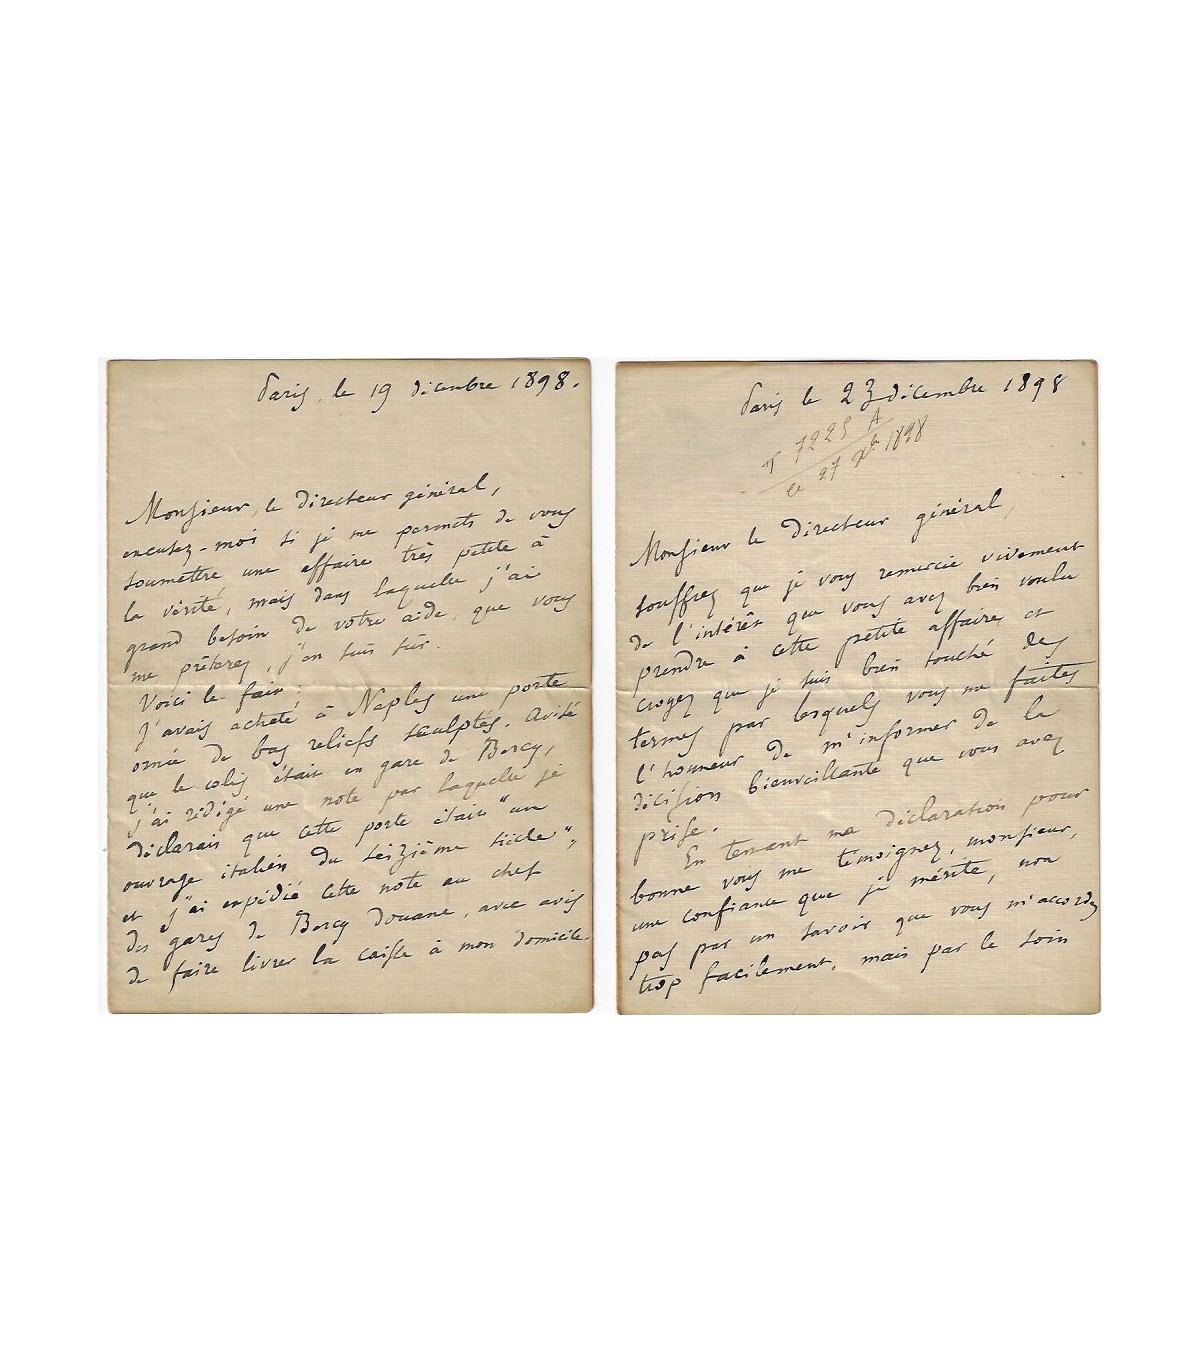 Paris, le 19 décembre 1898.
Monsieur, le Directeur général,
excusez-moi si je me permets de vous
soumettre une affaire très petite à
la vérité, mais dans laquelle j'ai
grand besoin de votre aide, que vous
me prêterez, j'en suis sûr.
Voici le fait :
J'avais acheté à Naples une porte
ornée de bas reliefs sculptés. Avisé
que le colis était en gare de Bercy,
j'ai rédigé une note par laquelle je
déclarais que cette porte était "un
ouvrage italien du seizième siècle",
et j'ai expédié cette note au chef
des gares de Bercy Douane, avec avis
de faire livrer la caisse à mon domicile
Paris le 23 décembre 1898
T 7225 A
le 27 Xbre 1898
Monsieur le Directeur général,
souffrez que je vous remercie vivement
de l'intérêt que vous avez bien voulu
prendre à cette petite affaire et
croyez que je suis bien touché des
termes par lesquels vous me faites
l'honneur de m'informer de la
décision bienveillante que vous avez
prise.
En tenant ma déclaration pour
bonne vous me témoignez, monsieur,
une confiance que je mérite, non
pas par un savoir que vous m'accordez
trop facilement, mais par le soin